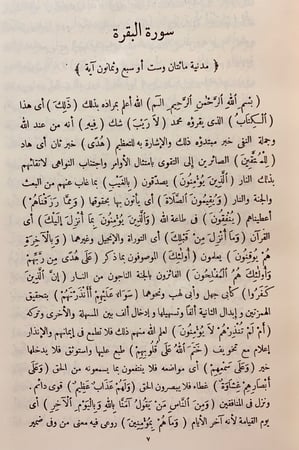 سورة البقرة
﴿ مدنية مائتان وست أو سبع وثمانون آية ﴾
(بِسْمِ اللَّهِ الرَّحْمَنِ الرَّحِيمِ الٓمٓ) الله أعلم بمراده بذلك (ذَلِكَ) أى هذا
(الْكِتَابُ) الذى يقرؤه محمد (لَا رَيْبَ) شك (فِيهِ) أنه من عند الله
وجملة النفى خبر مبتدؤه ذلك والإشارة به للتعظيم (هُدًى) خبر ثان أى هاد
(لِلْمُتَّقِينَ) الصائرين إلى التقوى بامتثال الأوامر واجتناب النواهى لاتقائهم
بذلك النار (الَّذِينَ يُؤْمِنُونَ) يصدّقون (بِالْغَيْبِ) بما غاب عنهم من البعث
والجنة والنار (وَيُقِيمُونَ الصَّلَاةَ) أى يأتون بها بحقوقها (وَمِمَّا رَزَقْنَاهُمْ)
أعطيناهم (يُنْفِقُونَ) فى طاعة الله (وَالَّذِينَ يُؤْمِنُونَ بِمَا أُنْزِلَ إِلَيْكَ) أى
القرآن (وَمَا أُنْزِلَ مِنْ قَبْلِكَ) أى التوراة والإنجيل وغيرهما (وَبِالْآخِرَةِ
هُمْ يُوقِنُونَ) يعلمون (أُولَئِكَ) الموصوفون بما ذكر (عَلَى هُدًى مِنْ رَبِّهِمْ
وَأُولَئِكَ هُمُ الْمُفْلِحُونَ) الفائزون بالجنة الناجون من النار (إِنَّ الَّذِينَ
كَفَرُوا) كأبى جهل وأبى لهب ونحوهما (سَوَاءٌ عَلَيْهِمْ أَأَنْذَرْتَهُمْ) بتحقيق
الهمزتين وإبدال الثانية ألفا وتسهيلها وإدخال ألف بين المسهلة والأخرى وتركه
(أَمْ لَمْ تُنْذِرْهُمْ لَا يُؤْمِنُونَ) لعلم الله منهم ذلك فلا تطمع فى إيمانهم والإنذار
إعلام مع تخويف (خَتَمَ اللَّهُ عَلَى قُلُوبِهِمْ) طبع عليها واستوثق فلا يدخلها
خير (وَعَلَى سَمْعِهِمْ) أى مواضعه فلا ينتفعون بما يسمعونه من الحق (وَعَلَى
أَبْصَارِهِمْ غِشَاوَةٌ) غطاء فلا يبصرون الحق (وَلَهُمْ عَذَابٌ عَظِيمٌ) قوى دائم .
ونزل فى المنافقين (وَمِنَ النَّاسِ مَنْ يَقُولُ آمَنَّا بِاللَّهِ وَبِالْيَوْمِ الْآخِرِ) أى
يوم القيامة لأنه آخر الأيام (وَمَا هُمْ بِمُؤْمِنِينَ) روعى فيه معنى من وفى ضمير
٧